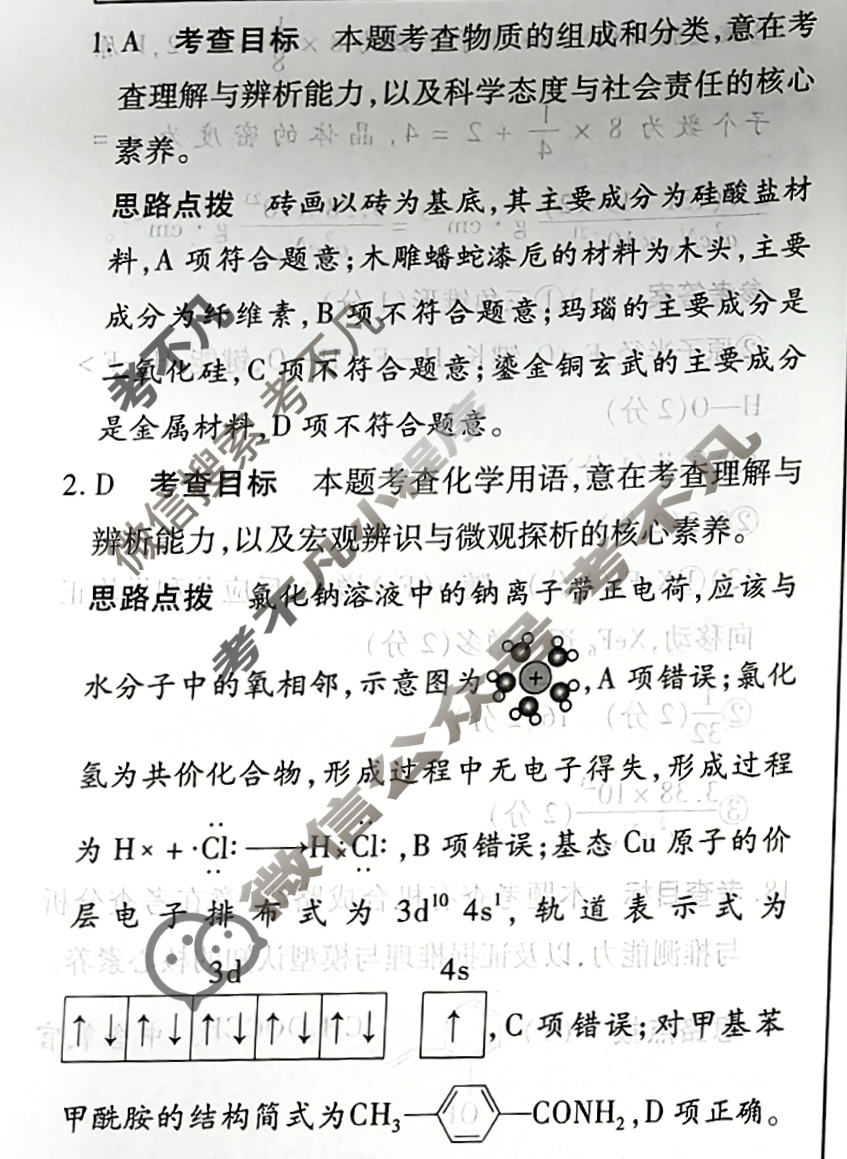 1. A 考查目标 本题考查物质的组成和分类,意在考
查理解与辨析能力,以及科学态度与社会责任的核心
素养。
思路点拨 砖画以砖为基底,其主要成分为硅酸盐材
料,A 项符合题意;木雕蟠蛇漆卮的材料为木头,主要
成分为纤维素,B 项不符合题意;玛瑙的主要成分是
二氧化硅,C 项不符合题意;鎏金铜玄武的主要成分
是金属材料,D 项不符合题意。
2. D 考查目标 本题考查化学用语,意在考查理解与
辨析能力,以及宏观辨识与微观探析的核心素养。
思路点拨 氯化钠溶液中的钠离子带正电荷,应该与
水分子中的氧相邻,示意图为 + ,A 项错误;氯化
氢为共价化合物,形成过程中无电子得失,形成过程
为 H× + ·Cl: ⟶ H×Cl: ,B 项错误;基态 Cu 原子的价
层电子排布式为 3d¹⁰ 4s¹,轨道表示式为
3d 4s
↑↓ ↑↓ ↑↓ ↑↓ ↑↓ ↑ ,C 项错误;对甲基苯
甲酰胺的结构简式为CH₃— —CONH₂,D 项正确。
考不凡
微信搜索 考不凡
考不凡小程序
微信公众号 考不凡